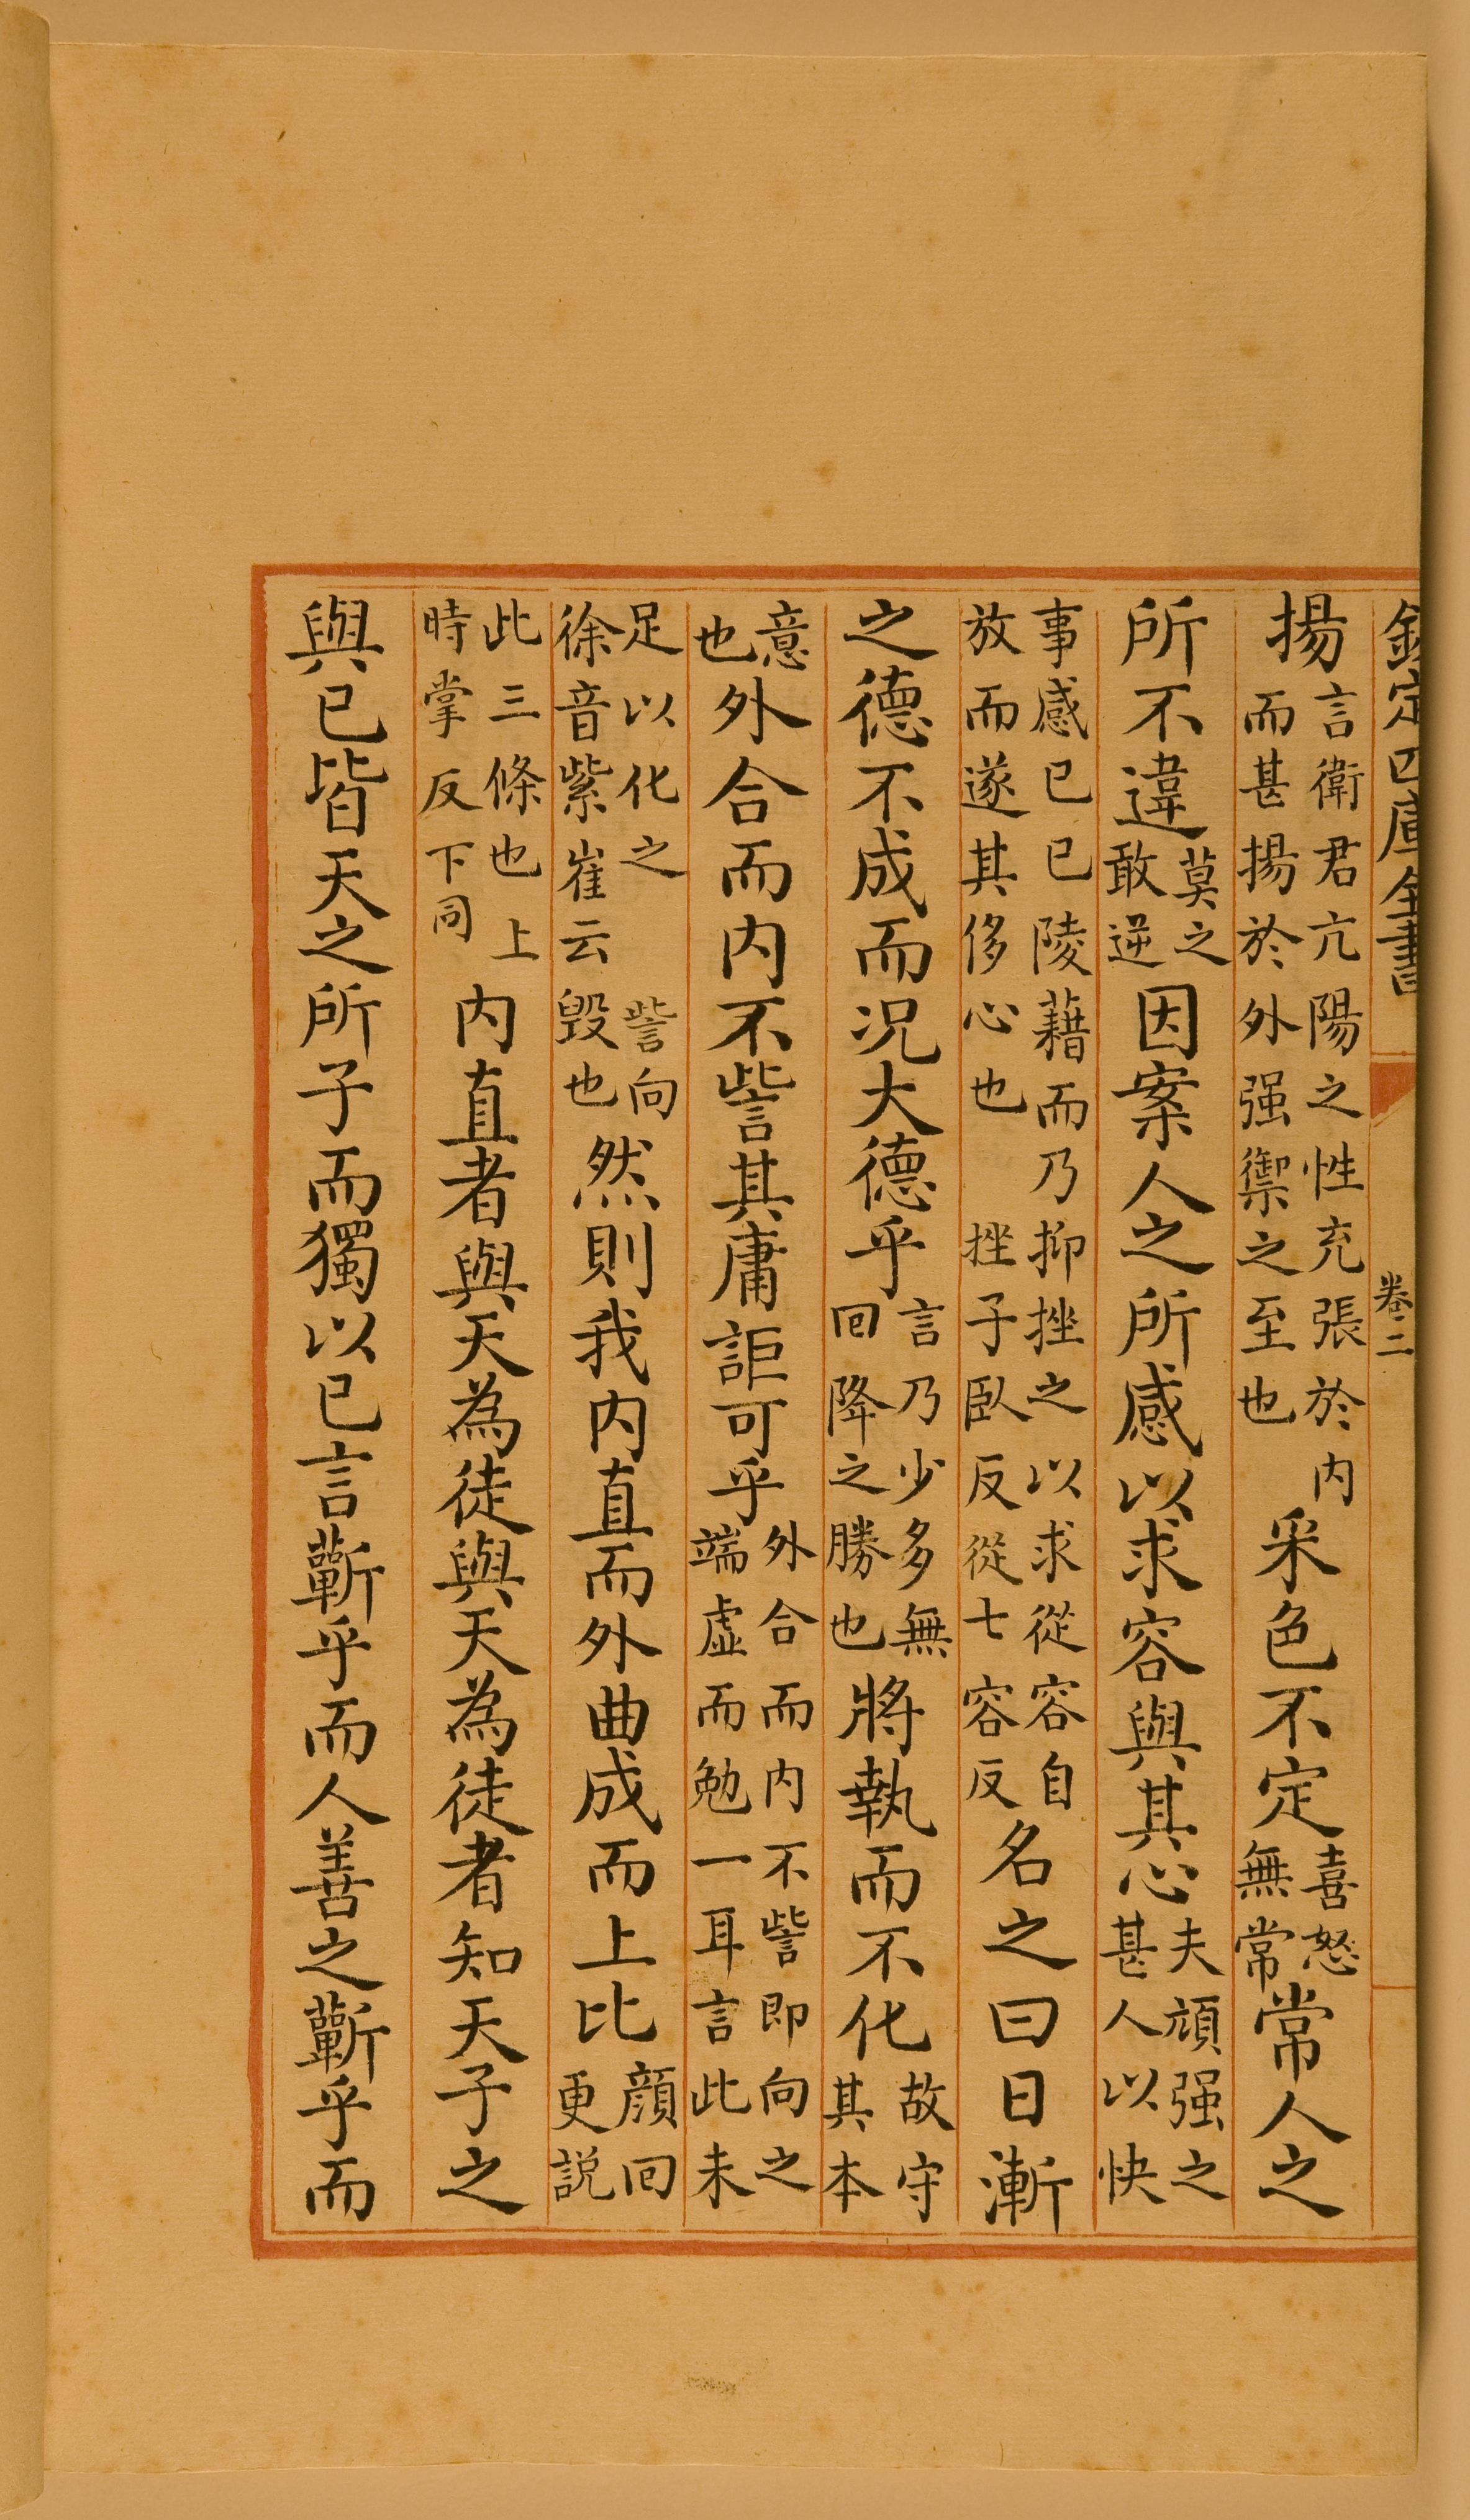 欽定四庫全書
卷二
揚言衛君亢陽之性充張於内而甚揚於外强禦之至也采色不定喜怒無常常人之
所不違莫之敢逆因案人之所感以求容與其心夫頑强之甚人以快
事感已已陵藉而乃抑挫之以求從容自放而遂其侈心也挫子臥反從七容反名之曰日漸
之德不成而况大德乎言乃少多無回降之勝也將執而不化故守其本
意也外合而内不訾其庸詎可乎外合而内不訾即向之端虚而勉一耳言此未
足以化之訾向徐音紫崔云毁也然則我内直而外曲成而上比顔回更説
此三條也上時掌反下同内直者與天為徒與天為徒者知天子之
與已皆天之所子而獨以已言蘄乎而人善之蘄乎而